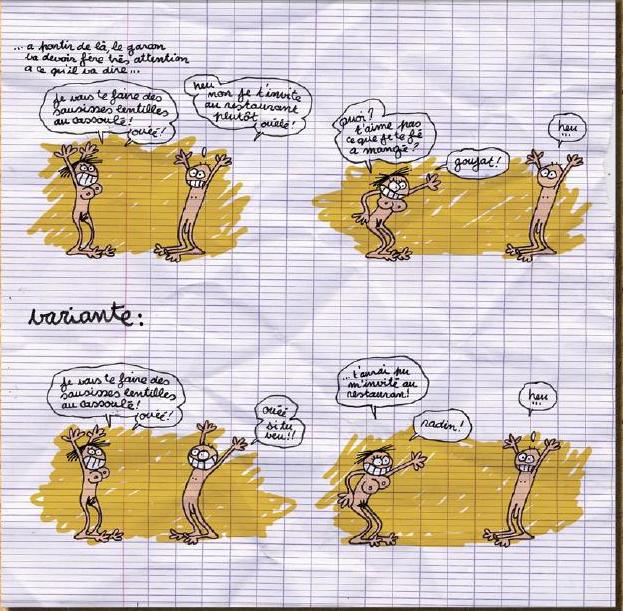 ...a partir de là, le garçon
va devoir fère très attention
a ce qu'il va dire...
je vais te faire des
sausisses lentilles
au cassoulé!
ouéé!
heu...
non je t'invite
au restaurant
plutôt
ouélé!
quoi?
t'aime pas
ce que je te fé
a mangé?
goujat!
heu
...
variante:
je vais te faire des
sausisses lentilles
au cassoulé!
ouéé!
ouéé
si tu
veu!!
...t'aurai pu
m'invité au
restaurant!
radin!
heu
...